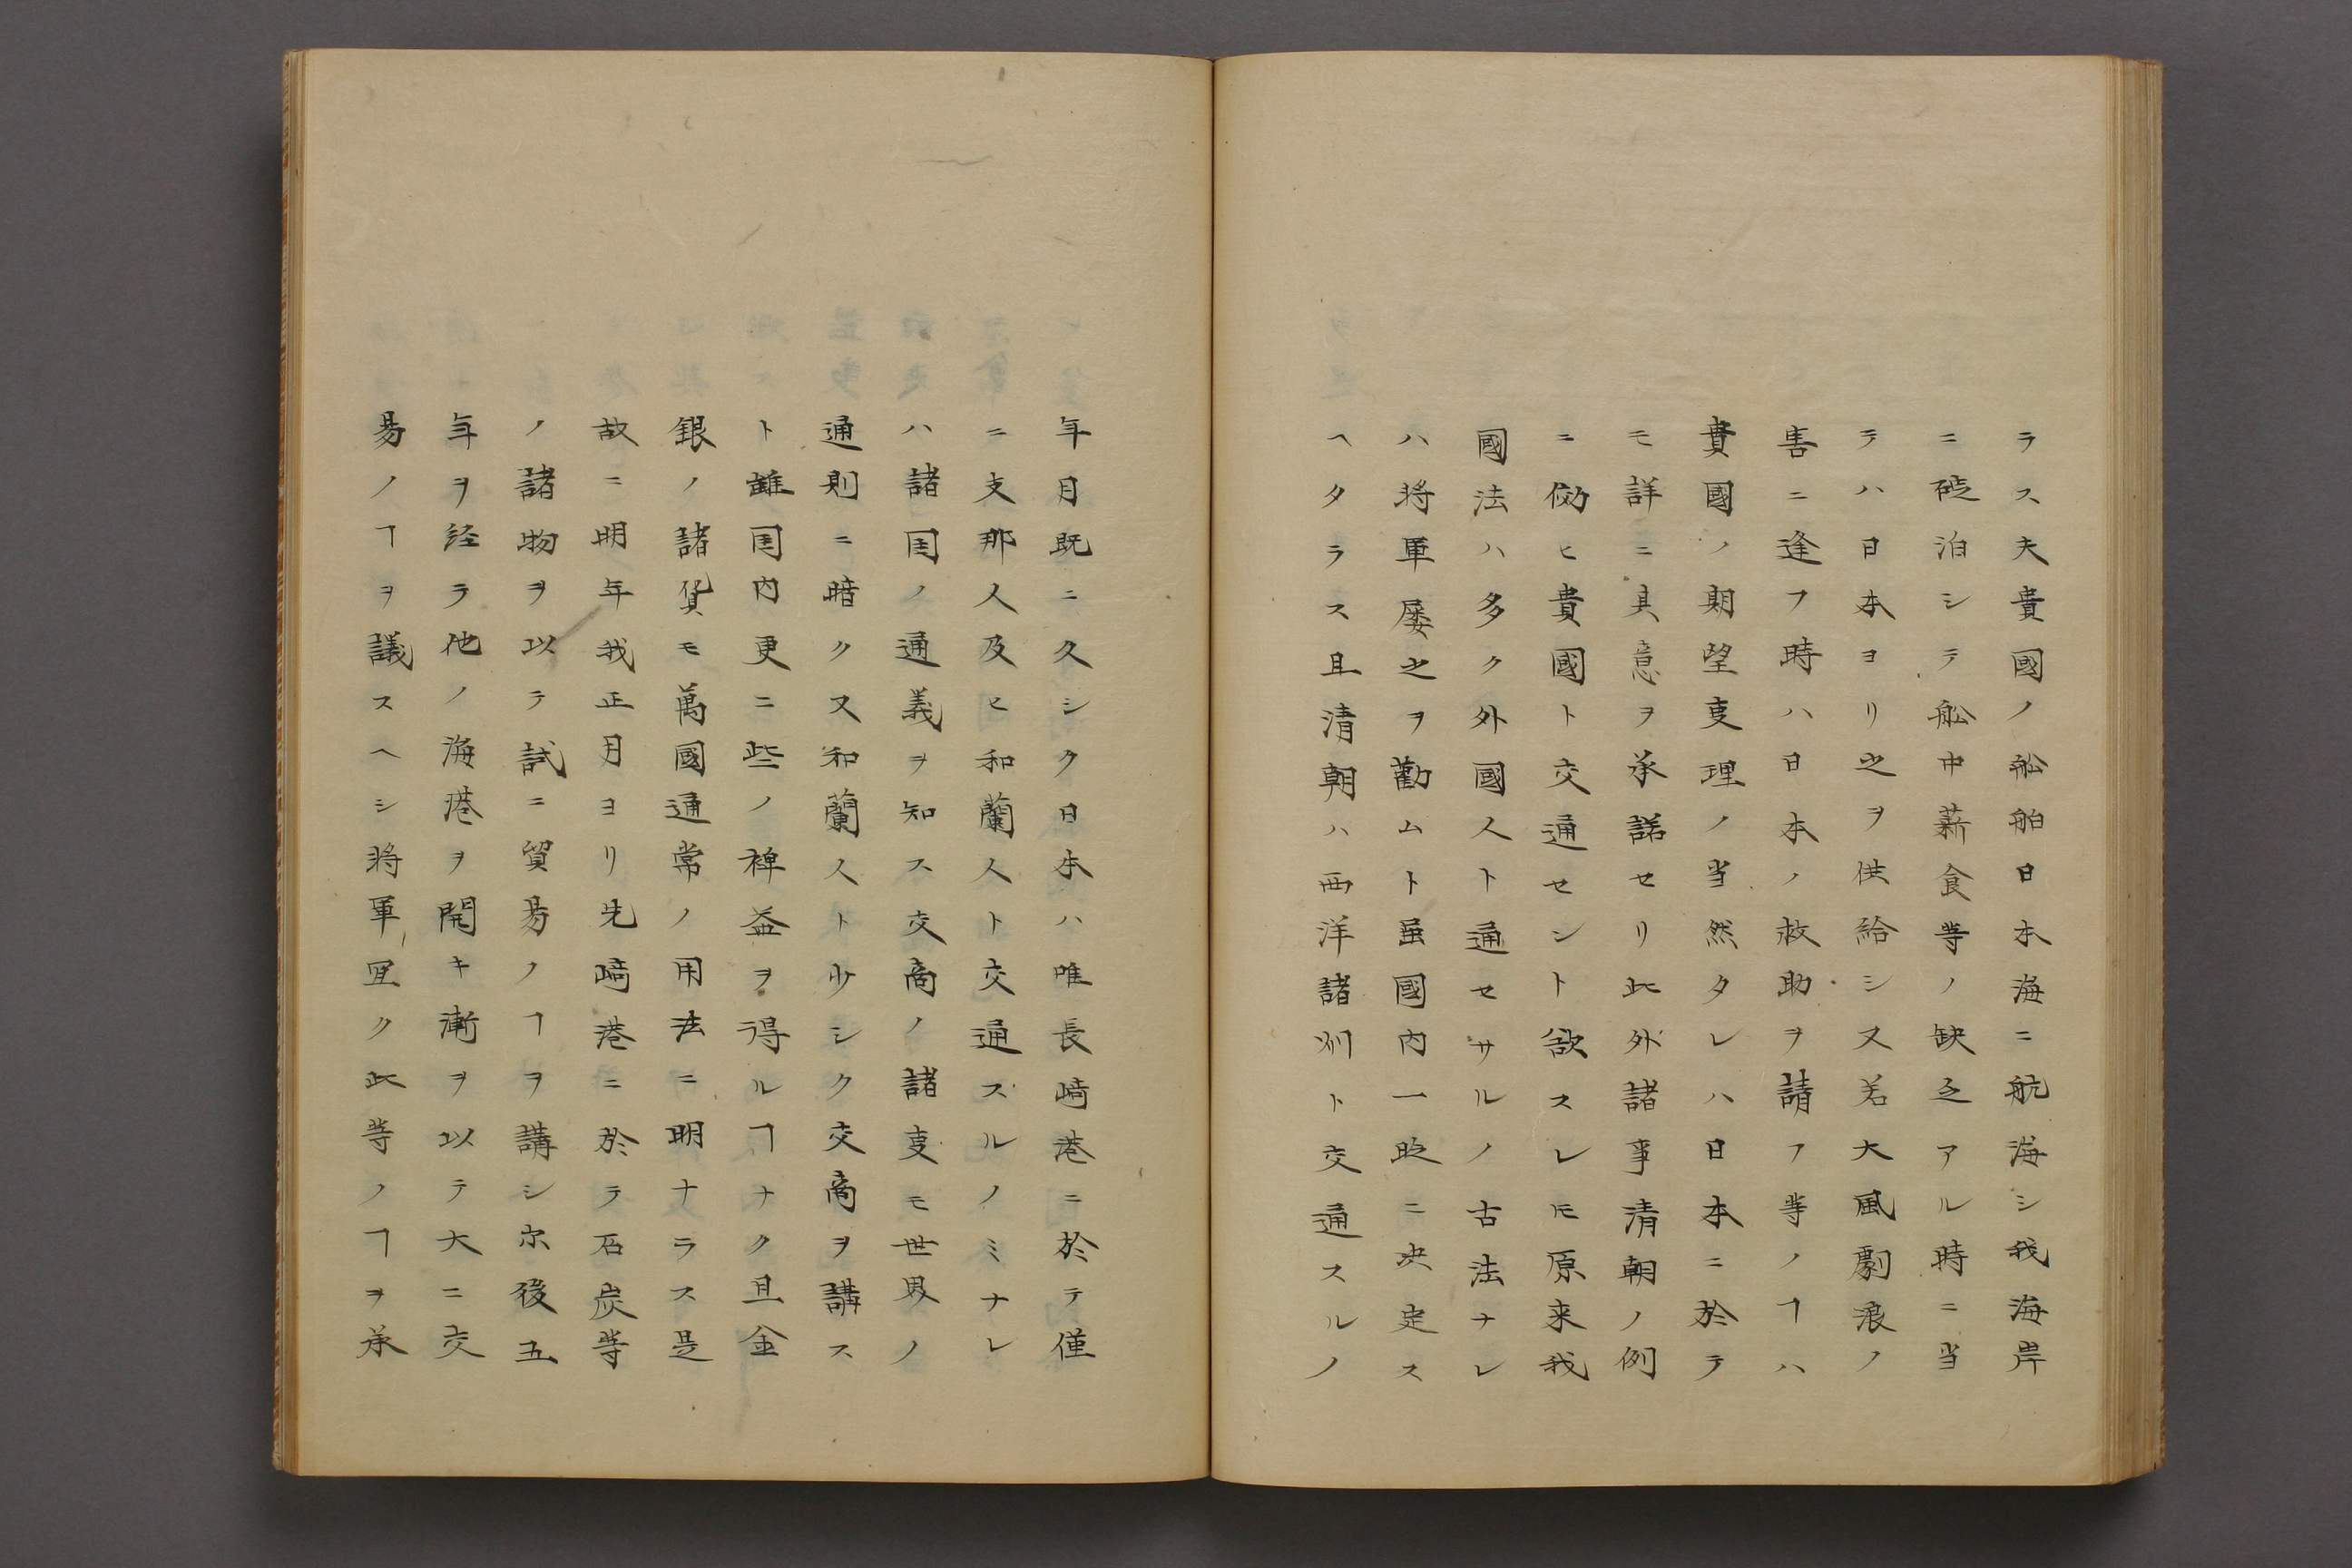 ラス夫貴國ノ舩舶日本海ニ航海シ我海岸
ニ碇泊シテ舩中薪食等ノ缺乏アル時ニ当
テハ日本ヨリ之ヲ供給シ又若大風劇浪ノ
害ニ逢フ時ハ日本ノ救助ヲ請フ等ノヿハ
貴國ノ期望叓理ノ当然タレハ日本ニ於テ
モ詳ニ其意ヲ承諾セリ此外諸事清朝ノ例
ニ倣ヒ貴國ト交通セント欲スレ𪜈原来我
國法ハ多ク外國人ト通セサルノ古法ナレ
ハ将軍屡之ヲ勸ムト虽國内一時ニ决定ス
ヘタラス且清朝ハ西洋諸刕ト交通スルノ
年月既ニ久シク日本ハ唯長﨑港ニ於テ僅
ニ支那人及ヒ和蘭人ト交通スルノミナレ
ハ諸囯ノ通義ヲ知ス交商ノ諸叓モ世界ノ
通則ニ暗ク又和蘭人ト少シク交商ヲ講ス
ト雖囯内更ニ些ノ裨益ヲ得ルヿナク且金
銀ノ諸貨モ萬國通常ノ用法ニ明ナラス是
故ニ明年我正月ヨリ先﨑港ニ於テ石炭等
ノ諸物ヲ以テ試ニ貿易ノヿヲ講シ尓後五
年ヲ経テ他ノ海港ヲ開キ漸ヲ以テ大ニ交
易ノヿヲ議スヘシ将軍宜ク此等ノヿヲ承